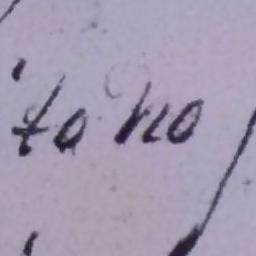 to no